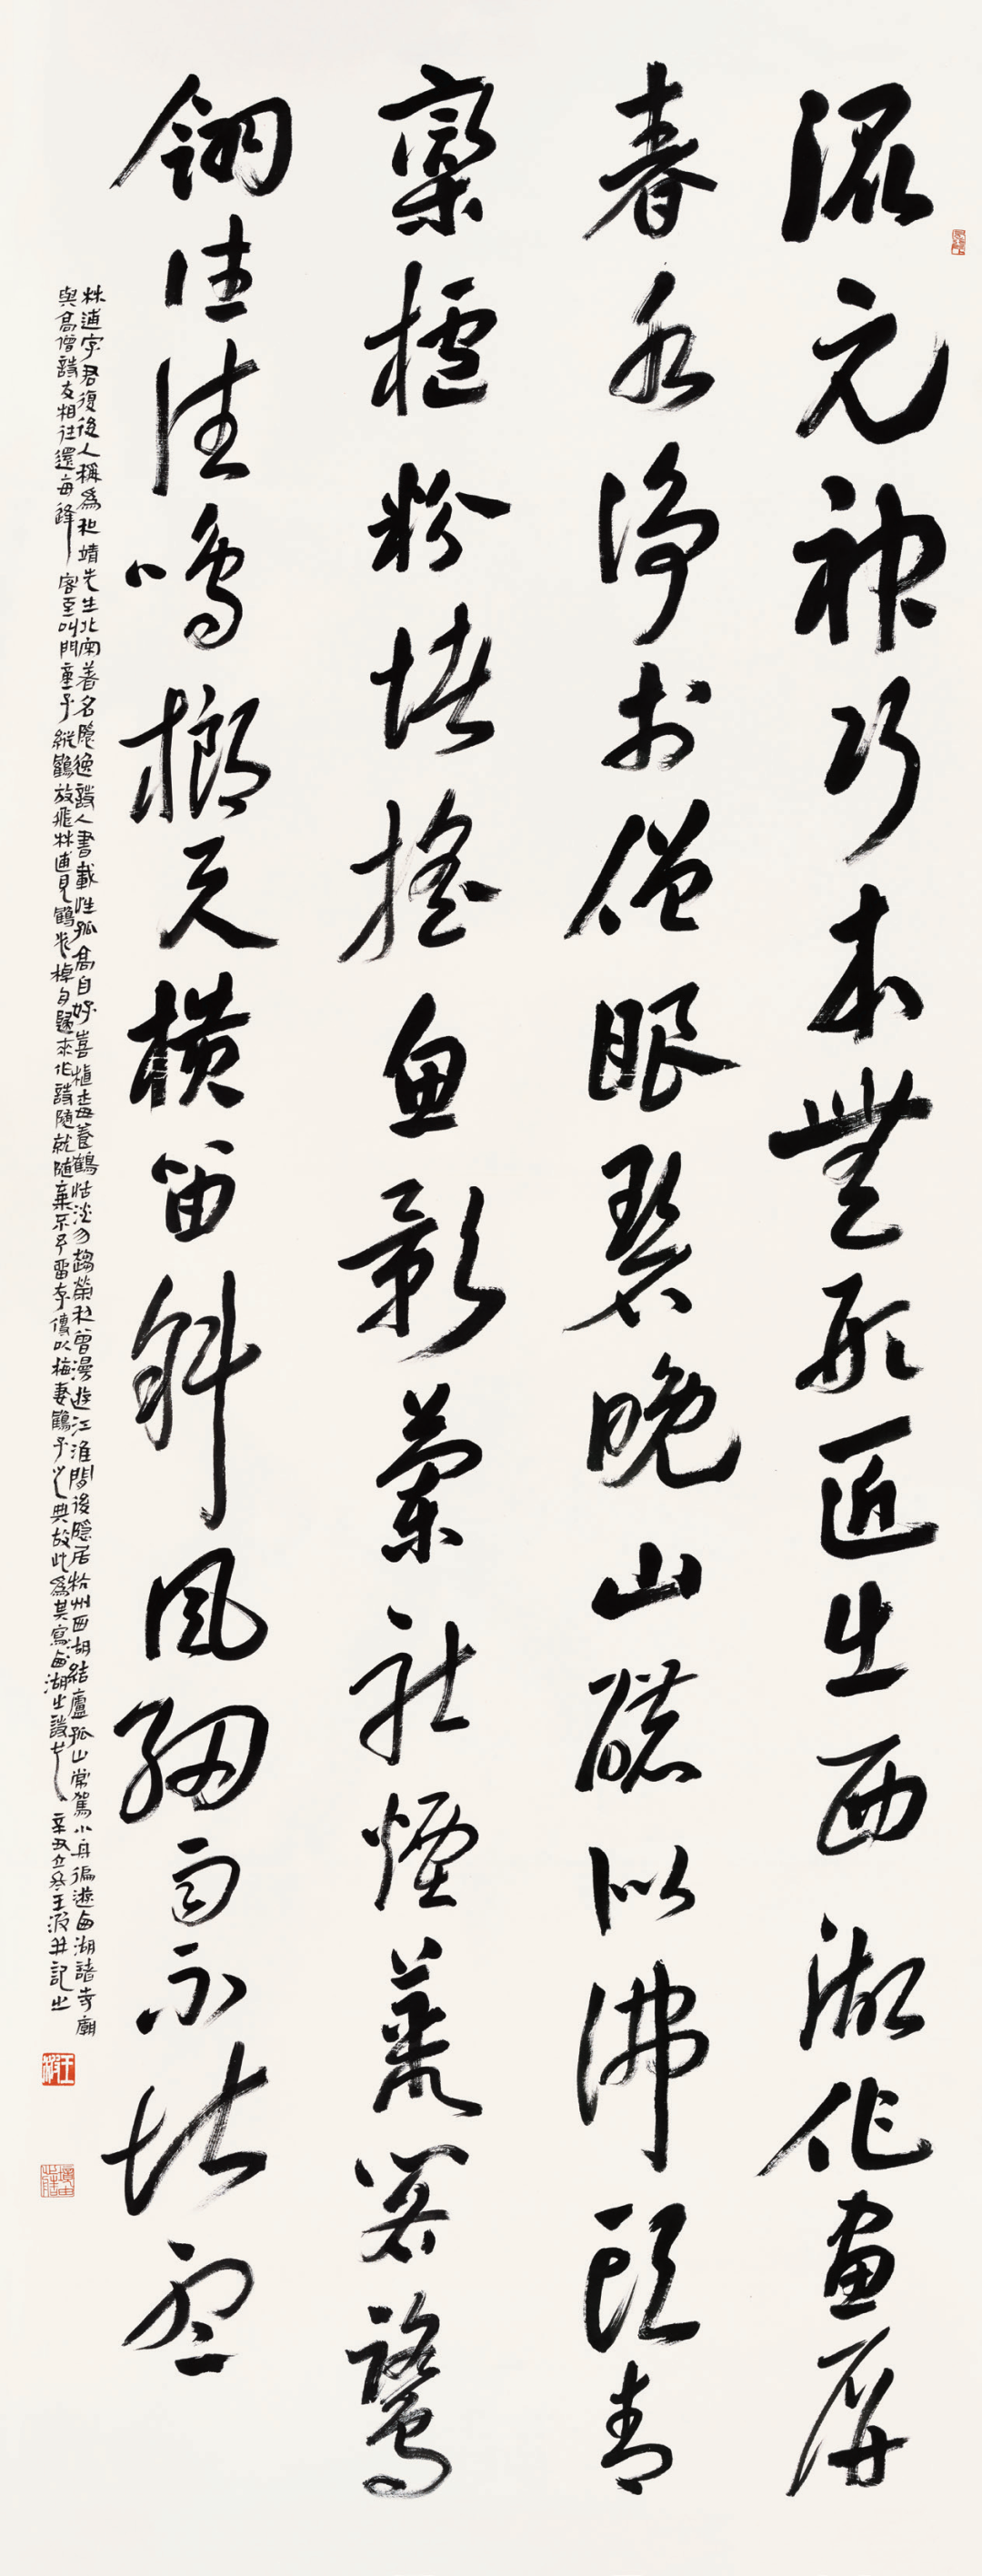 混元神巧本無形匠出西湖作畫屏
春水淨於僧眼碧晚山醲似佛頭青
欒櫨粉堵搖魚影蘭杜煙叢閣鷺
翎往往鳴榔與橫笛斜風細雨不堪聽
林逋字君復後人稱為和靖先生北宋著名隱逸詩人書載性孤高自好喜植梅養鶴恬淡勿趨榮利曾漫遊江淮間後隱居杭州西湖結廬孤山常駕小舟徧遊西湖諸寺廟
與高僧詩友相往還每逢客至叫門童子縱鶴放飛林逋見鶴必棹舟歸來作詩隨就隨棄不予留存傳以梅妻鶴子之典故此為其寫西湖之詩也 辛丑立冬王并記之